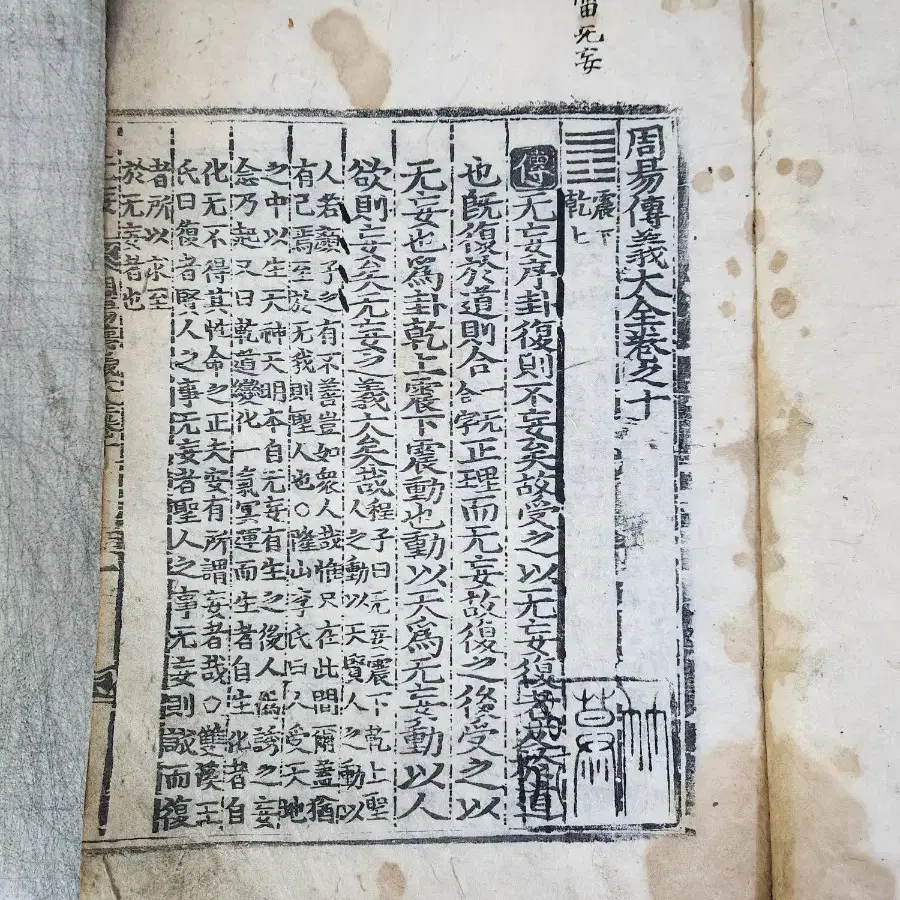 无妄
周易傳義大全卷之十
震下
乾上
傳
无妄序卦復則不妄矣故受之以无妄復者反於道
也旣復於道則合一无合字正理而无妄故復之後受之以
无妄也爲卦乾上震下震動也動以天爲无妄動以人
欲則妄矣无妄之義大矣哉程子曰无妄震下乾上聖
人之動以天賢人之動以
人若顔子之有不善豈如衆人哉惟只在此間爾蓋猶
有己焉至於无我則聖人也○隆山李氏曰人受天地
之中以生天神天明本自无妄有生之後人僞誘之妄
念乃起又曰乾道變化一氣冥運而生者自生化者自
化无不得其性命之正夫安有所謂妄者哉○雙溪王
氏曰復者賢人之事无妄者聖人之事无妄則誠而復
者所以求至
於无妄者也